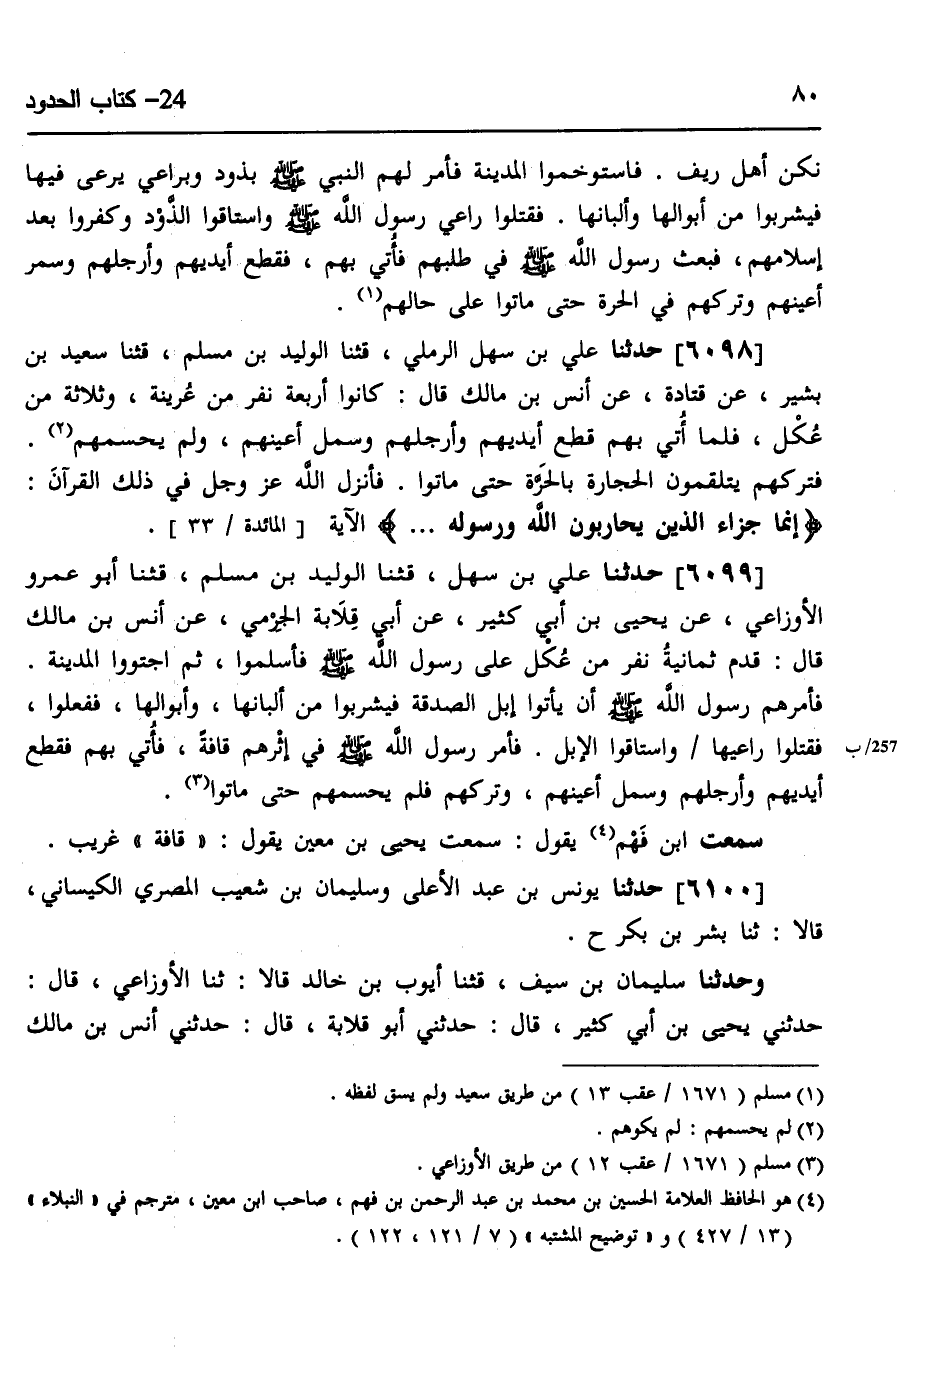 ٨٠ 24– كتاب الحدود
نكن أهل ريف . فاستوخموا المدينة فأمر لهم النبي ﷺ بذود وبراعي يرعى فيها
فيشربوا من أبوالها وألبانها . فقتلوا راعي رسول اللَّه ﷺ واستاقوا الذَّوْد وكفروا بعد
إسلامهم ، فبعث رسول اللَّه ﷺ في طلبهم فأُتي بهم ، فقطع أيديهم وأرجلهم وسمر
أعينهم وتركهم في الحرة حتى ماتوا على حالهم(١) .
[٦٠٩٨] حدثنا علي بن سهل الرملي ، قثنا الوليد بن مسلم ، قثنا سعيد بن
بشير ، عن قتادة ، عن أنس بن مالك قال : كانوا أربعة نفر من عُرينة ، وثلاثة من
عُكْل ، فلما أُتي بهم قطع أيديهم وأرجلهم وسمل أعينهم ، ولم يحسمهم(٢) .
فتركهم يتلقمون الحجارة بالحَرَّة حتى ماتوا . فأنزل اللَّه عز وجل في ذلك القرآنَ :
﴿إنما جزاء الذين يحاربون اللَّه ورسوله ... ﴾ الآية [ المائدة / ٣٣ ] .
[٦٠٩٩] حدثنا علي بن سهل ، قثنا الوليد بن مسلم ، قثنا أبو عمرو
الأوزاعي ، عن يحيى بن أبي كثير ، عن أبي قِلَابة الجَرْمي ، عن أنس بن مالك
قال : قدم ثمانيةُ نفر من عُكْل على رسول اللَّه ﷺ فأسلموا ، ثم اجتووا المدينة .
فأمرهم رسول اللَّه ﷺ أن يأتوا إبل الصدقة فيشربوا من ألبانها ، وأبوالها ، ففعلوا ،
257/ب فقتلوا راعيها / واستاقوا الإبل . فأمر رسول اللَّه ﷺ في إثْرهم قافةً ، فأُتي بهم فقطع
أيديهم وأرجلهم وسمل أعينهم ، وتركهم فلم يحسمهم حتى ماتوا(٣) .
سمعت ابن فَهْم(٤) يقول : سمعت يحيى بن معين يقول : « قافة » غريب .
[٦١٠٠] حدثنا يونس بن عبد الأعلى وسليمان بن شعيب المصري الكيساني ،
قالا : ثنا بشر بن بكر ح .
وحدثنا سليمان بن سيف ، قثنا أيوب بن خالد قالا : ثنا الأوزاعي ، قال :
حدثني يحيى بن أبي كثير ، قال : حدثني أبو قلابة ، قال : حدثني أنس بن مالك
(١) مسلم ( ١٦٧١ / عقب ١٣ ) من طريق سعيد ولم يسق لفظه .
(٢) لم يحسمهم : لم يكوهم .
(٣) مسلم ( ١٦٧١ / عقب ١٢ ) من طريق الأوزاعي .
(٤) هو الحافظ العلامة الحسين بن محمد بن عبد الرحمن بن فهم ، صاحب ابن معين ، مترجم في « النبلاء »
( ١٣ / ٤٢٧ ) و « توضيح المشتبه » ( ٧ / ١٢١ ، ١٢٢ ) .